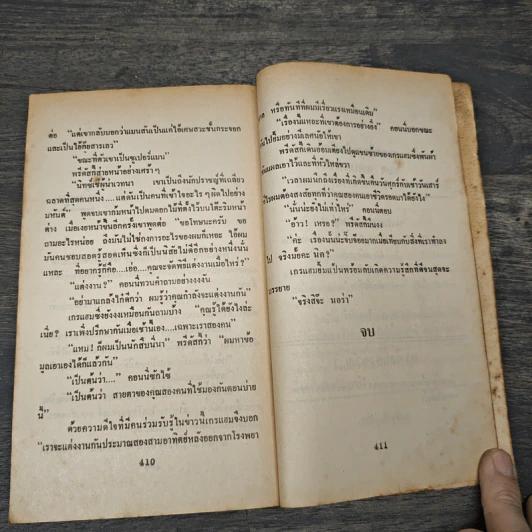 ต่อ "แต่เขากลับบอกว่าแมนสันเป็นแค่ไอ้เศษสวะชั้นกระจอก
และเป็นไอ้คือสารเลว"
"ขณะที่ตัวเขาเป็นซูเปอร์แมน"
พรีดัสก์ใส่หน้าอย่างเศร้าๆ
เขาเป็นถึงนักปราชญ์ที่เดียว
ฉลาดที่สุดคนหนึ่ง....แต่ดันเป็นคนที่เข้าใจอะไรๆ ผิดไปอย่าง
มหันต์" พูดจบเขาก้มหน้าไปดมดอกไม้ที่ตั้งไว้บนโต๊ะริมหน้า
ต่าง เมื่อเงยหน้าขึ้นอีกครั้งเขาพูดต่อ "ขอโทษนะครับ ขอ
ถามอะไรหน่อย ถึงมันไม่ใช่กงการอะไรของผมก็เหอะ ไอ้ผม
มันคนชอบสอดรู้สอดเห็นซึ่งก็เป็นนิสัยไม่ดีอีกอย่างหนึ่งนั่น
แหละ ที่อยากรู้ก็คือ...เอ้อ....คุณจะจัดพิธีแต่งงานเมื่อไหร่?"
"แต่งงาน?" คอนนี่ทวนคำถามอย่างงงงัน
"อย่ามาแกล้งไก๋ดีกว่า ผมรู้ว่าคุณกำลังจะแต่งงานกัน"
เกรแฮมซึ่งยังงงเหมือนกันถามบ้าง "คุณรู้ได้ยังไงล่ะ
เนี่ย? เราเพิ่งปรึกษากันเมื่อเช้านี้เอง....เฉพาะเราสองคน"
"แหม! ก็ผมเป็นนักสืบนี่นา" พรีดัสก์ว่า "ผมหาข้อ
มูลเอาเองได้ก็แล้วกัน"
"เป็นต้นว่า...." คอนนี่ซักไซ้
"เป็นต้นว่า สายตาของคุณสองคนที่ใช้มองกันตอนบ่าย
นี้"
ด้วยความดีใจที่มีคนร่วมรับรู้ในข่าวนี้เกรแฮมจึงบอก
"เราจะแต่งงานกันประมาณสองสามอาทิตย์หลังออกจากโรงพยา
410
หรือทันทีที่ผมมีเรี่ยวแรงเหมือนเดิม"
"เรื่องนี้แหละที่เขาต้องการอย่างยิ่ง" คอนนี่บอกขณะ
พรีดัสก์เดินอ้อมเตียงไปดูแขนซ้ายของเกรแฮมซึ่งพันผ้า
"เวลาผมนึกถึงเรื่องที่เกิดขึ้นคืนวันศุกร์กับเช้าวันเสาร์
"นั่นน่ะยังไม่เท่าไหร่" คอนนี่ตอบ
"อ้าว! เหรอ?" พรีดัสก์มึนงง
"ค่ะ เรื่องนั้นน่ะจิ๊บจ้อยมากเมื่อเทียบกับสิ่งที่เราทำลง
ไป จริงมั้ยคะ นิค?"
เกรแฮมยิ้มแป้นพร้อมกับเกิดความรู้สึกที่ดีจนสุดจะ
บรรยาย
"จริงสิจ๊ะ นอร่า"
จบ
411